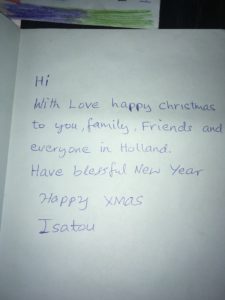 Hi
With Love happy christmas
to you, family, Friends and
everyone in Holland.
Have blessful New Year
Happy xmas
Isatou